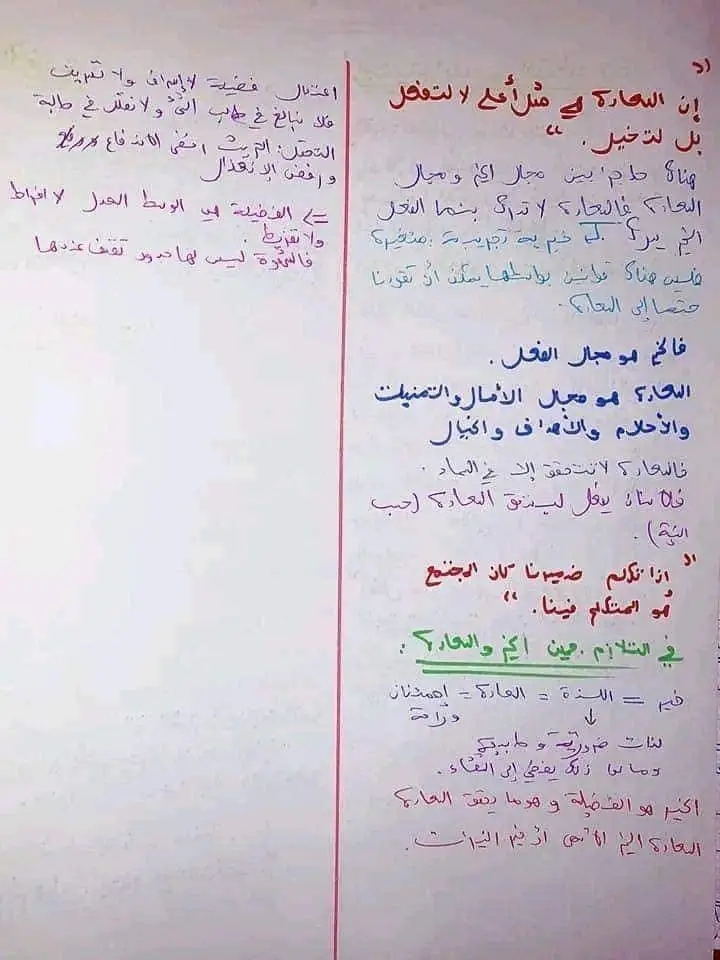 " إن السعادة هي مثل أعلى لا لتعقل
بل لتخيل. "
هناك حاجز بين مجال الخير ومجال
السعادة فالسعادة لا تدرك بينما الفعل
الخير يدرك تجريبية متغيرة
فليس هناك قوانين بواسطها يمكن أن تقودنا
حتما إلى السعادة.
فالخير هو مجال الفعل.
السعادة هو مجال الآمال والتمنيات
والأحلام والأهداف والخيال
فالسعادة لا تتحقق إلا في السماء.
فالإنسان يفعل ليستحق السعادة (حسب
النية).
" اذا تكلم ضميرنا كان المجتمع
هو المتكلم فينا. "
في التلازم بين الخير والسعادة:
خير = اللذة = السعادة = إطمئنان
وراحة
لذات ضرورية وطبيعية
وماعدا ذلك يفضي إلى الشقاء.
الخير هو الفضيلة وهو ما يحقق السعادة
السعادة الخير الأسمى أو خير الخيرات.
اعتدال فضيلة لا إسراف ولا
فلا نبالغ في طلب الشيء ولا نقلل في طلبه
التعقل: التريث الاندفاع
ورفض الإنعزال
=> الفضيلة هي الوسط العدل لا افراط
ولا تفريط.
ليس لها حدود تقف عندها